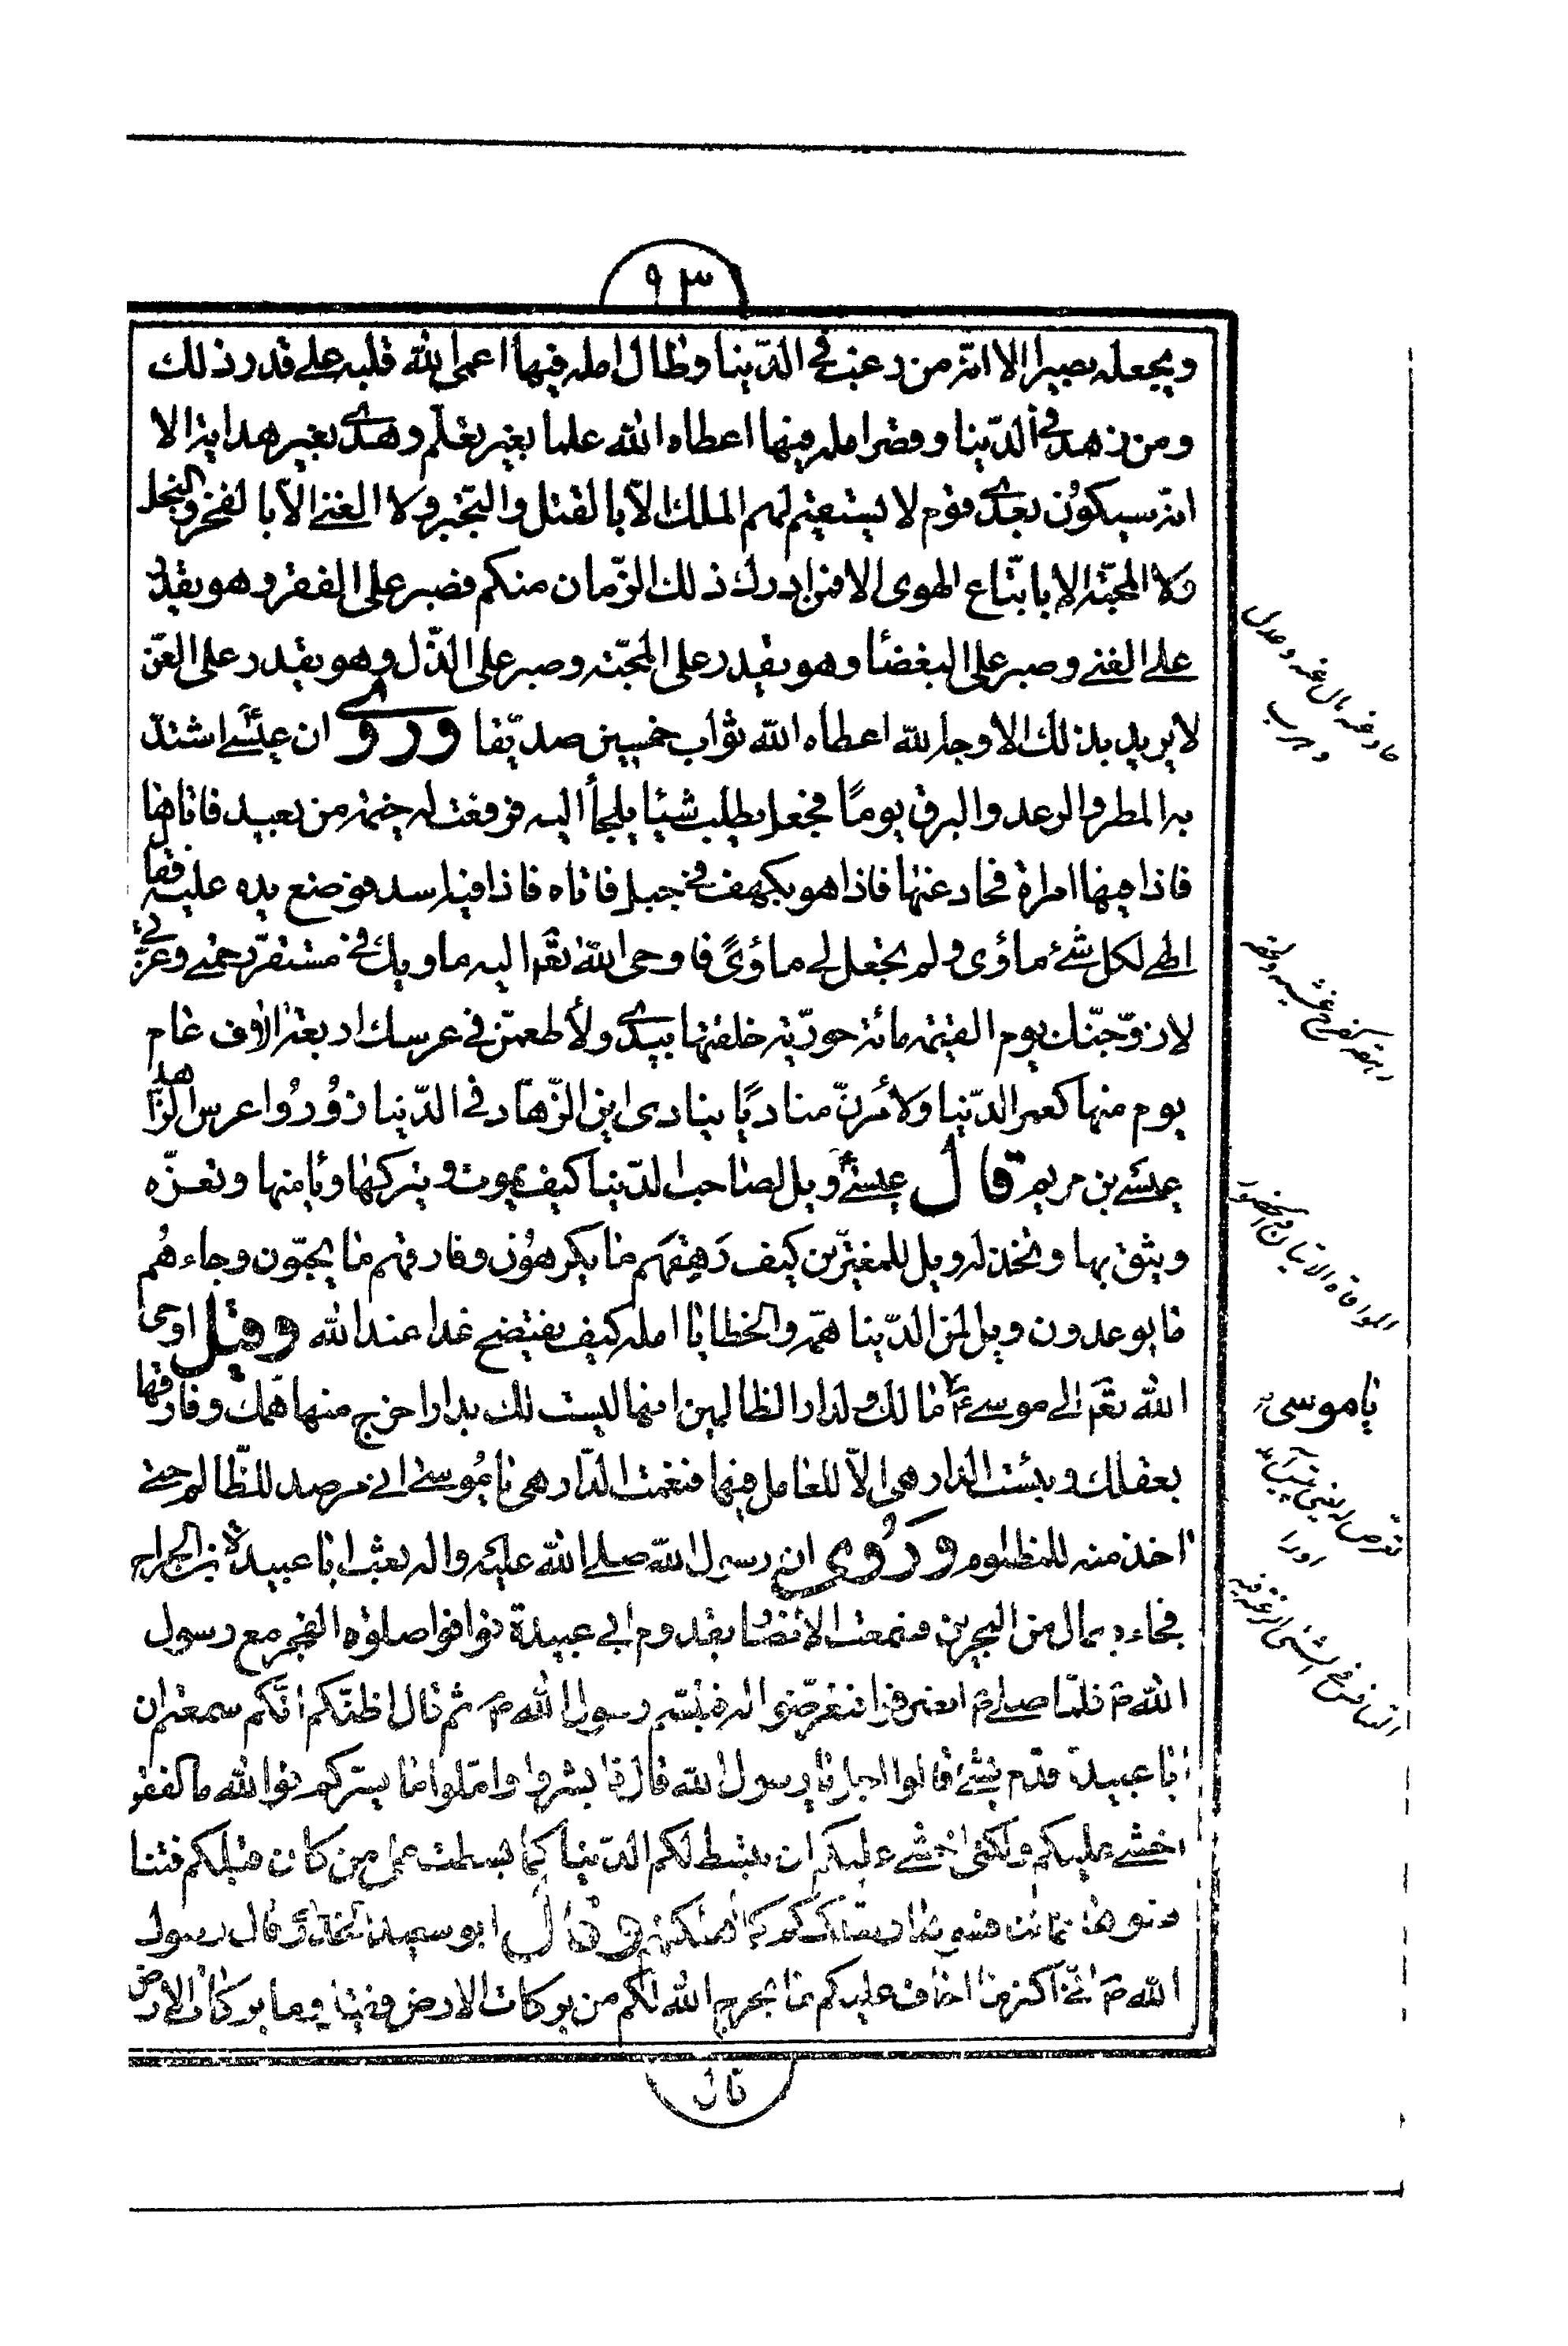 ٩٣
ويجعله بصيرا الا انه من رغب في الدّنيا وطال امله فيها اعمى الله قلبه على قدر ذلك
ومن زهد في الدّنيا وقصر امله فيها اعطاه الله علما بغير تعلّم وهدى بغير هداية الا
انه سيكون بعدى قوم لا يستقيم لهم الملك الّا بالقتل والتجّبر ولا الغنى الّا بالفخر والبخل
ولا المحبّة الا باتّباع الهوى الا فمن ادرك ذلك الزّمان منكم فصبر على الفقر وهو يقدر
على الغنى وصبر على البغضاء وهو يقدر على المحبّة وصبر على الذّل وهو يقدر على العزّ
لا يريد بذلك الا وجه الله اعطاه الله ثواب خمسين صدّيقا وروى ان عيسى اشتدّ
به المطر والرعد والبرق يوما فجعل يطلب شيئا يلجأ اليه فرفعت له خيمة من بعيد فاتاها
فاذا فيها امراة فحاد عنها فاذا هو بكهف في جبل فاتاه فاذا فيه اسد فوضع يده عليه فقال
الهى لكل شئ مأوى ولم تجعل لى مأوى فاوحى الله تعم اليه ماويك في مستقرّ رحمتى وعزّتي
لازوّجنّك يوم القيمة مائة حوريّة خلقتها بيدى ولأطعمنّ في عرسك اربعة الاف عام
يوم منها كعمر الدّنيا ولأمرنّ مناديا ينادى اين الزّهاد في الدّنيا زوروا عرس الزاهد
عيسى بن مريم قال عيسى ويل لصاحب الدّنيا كيف يموت ويتركها ويأمنها وتغرّه
ويثق بها وتخذله ويل للمغترّين كيف رهقهم ما يكرهون وفارقهم ما يحبّون وجاءهم
ما يوعدون ويل لمن الدّنيا همّه والخطايا امله كيف يفتضح غدا عند الله وقيل اوحى
الله تعم الى موسى ما لك ولدار الظالمين انها ليست لك بدار اخرج منها همّك وفارقها
بعقلك وبئست الدار هي الّا للعامل فيها فنعمت الدّار هي يا موسى انى مرصد للظّالم حتى
اخذ منه للمظلوم وروى ان رسول الله صلى الله عليه واله بعث ابا عبيدة بن الجراح
فجاءه بمال من البحرين فسمعت الانصار بقدوم ابى عبيدة فوافوا صلوة الفجر مع رسول
الله ص فلمّا صلى ص انصرف فتعرّضوا له فتبسّم رسول الله ص ثم قال اظنّكم انّكم سمعتم ان
ابا عبيدة قدم بشئ قالوا اجل يا رسول الله قال فابشروا وامّلوا ما يسرّكم فوالله ما الفقر
اخشى عليكم ولكنى اخشى عليكم ان تبسط لكم الدّنيا كما بسطت على من كان قبلكم فتنا
فسوها كما تنافسوها وتهلككم كما اهلكتهم وقال ابو سعيد الخدرى قال رسول
الله ص انّى اكثر ما اخاف عليكم ما يخرج الله لكم من بركات الارض فقيل وما بركات الارض
يا موسى
قال